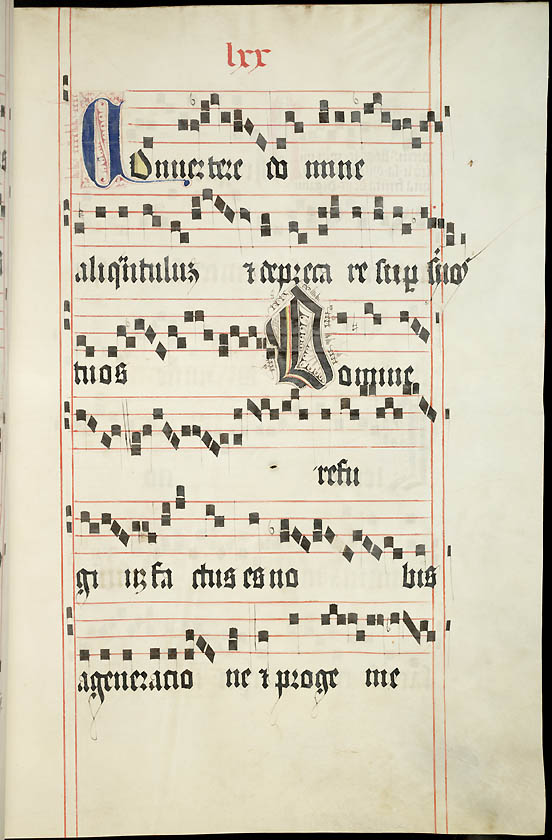 lxx
Conuertere do mine
aliq̃ntuluz ⁊ depreca re sup̱ ẽuos
tuos Domine
refu
gi uz fa ctus es no bis
ageneratio ne ⁊ proge nie